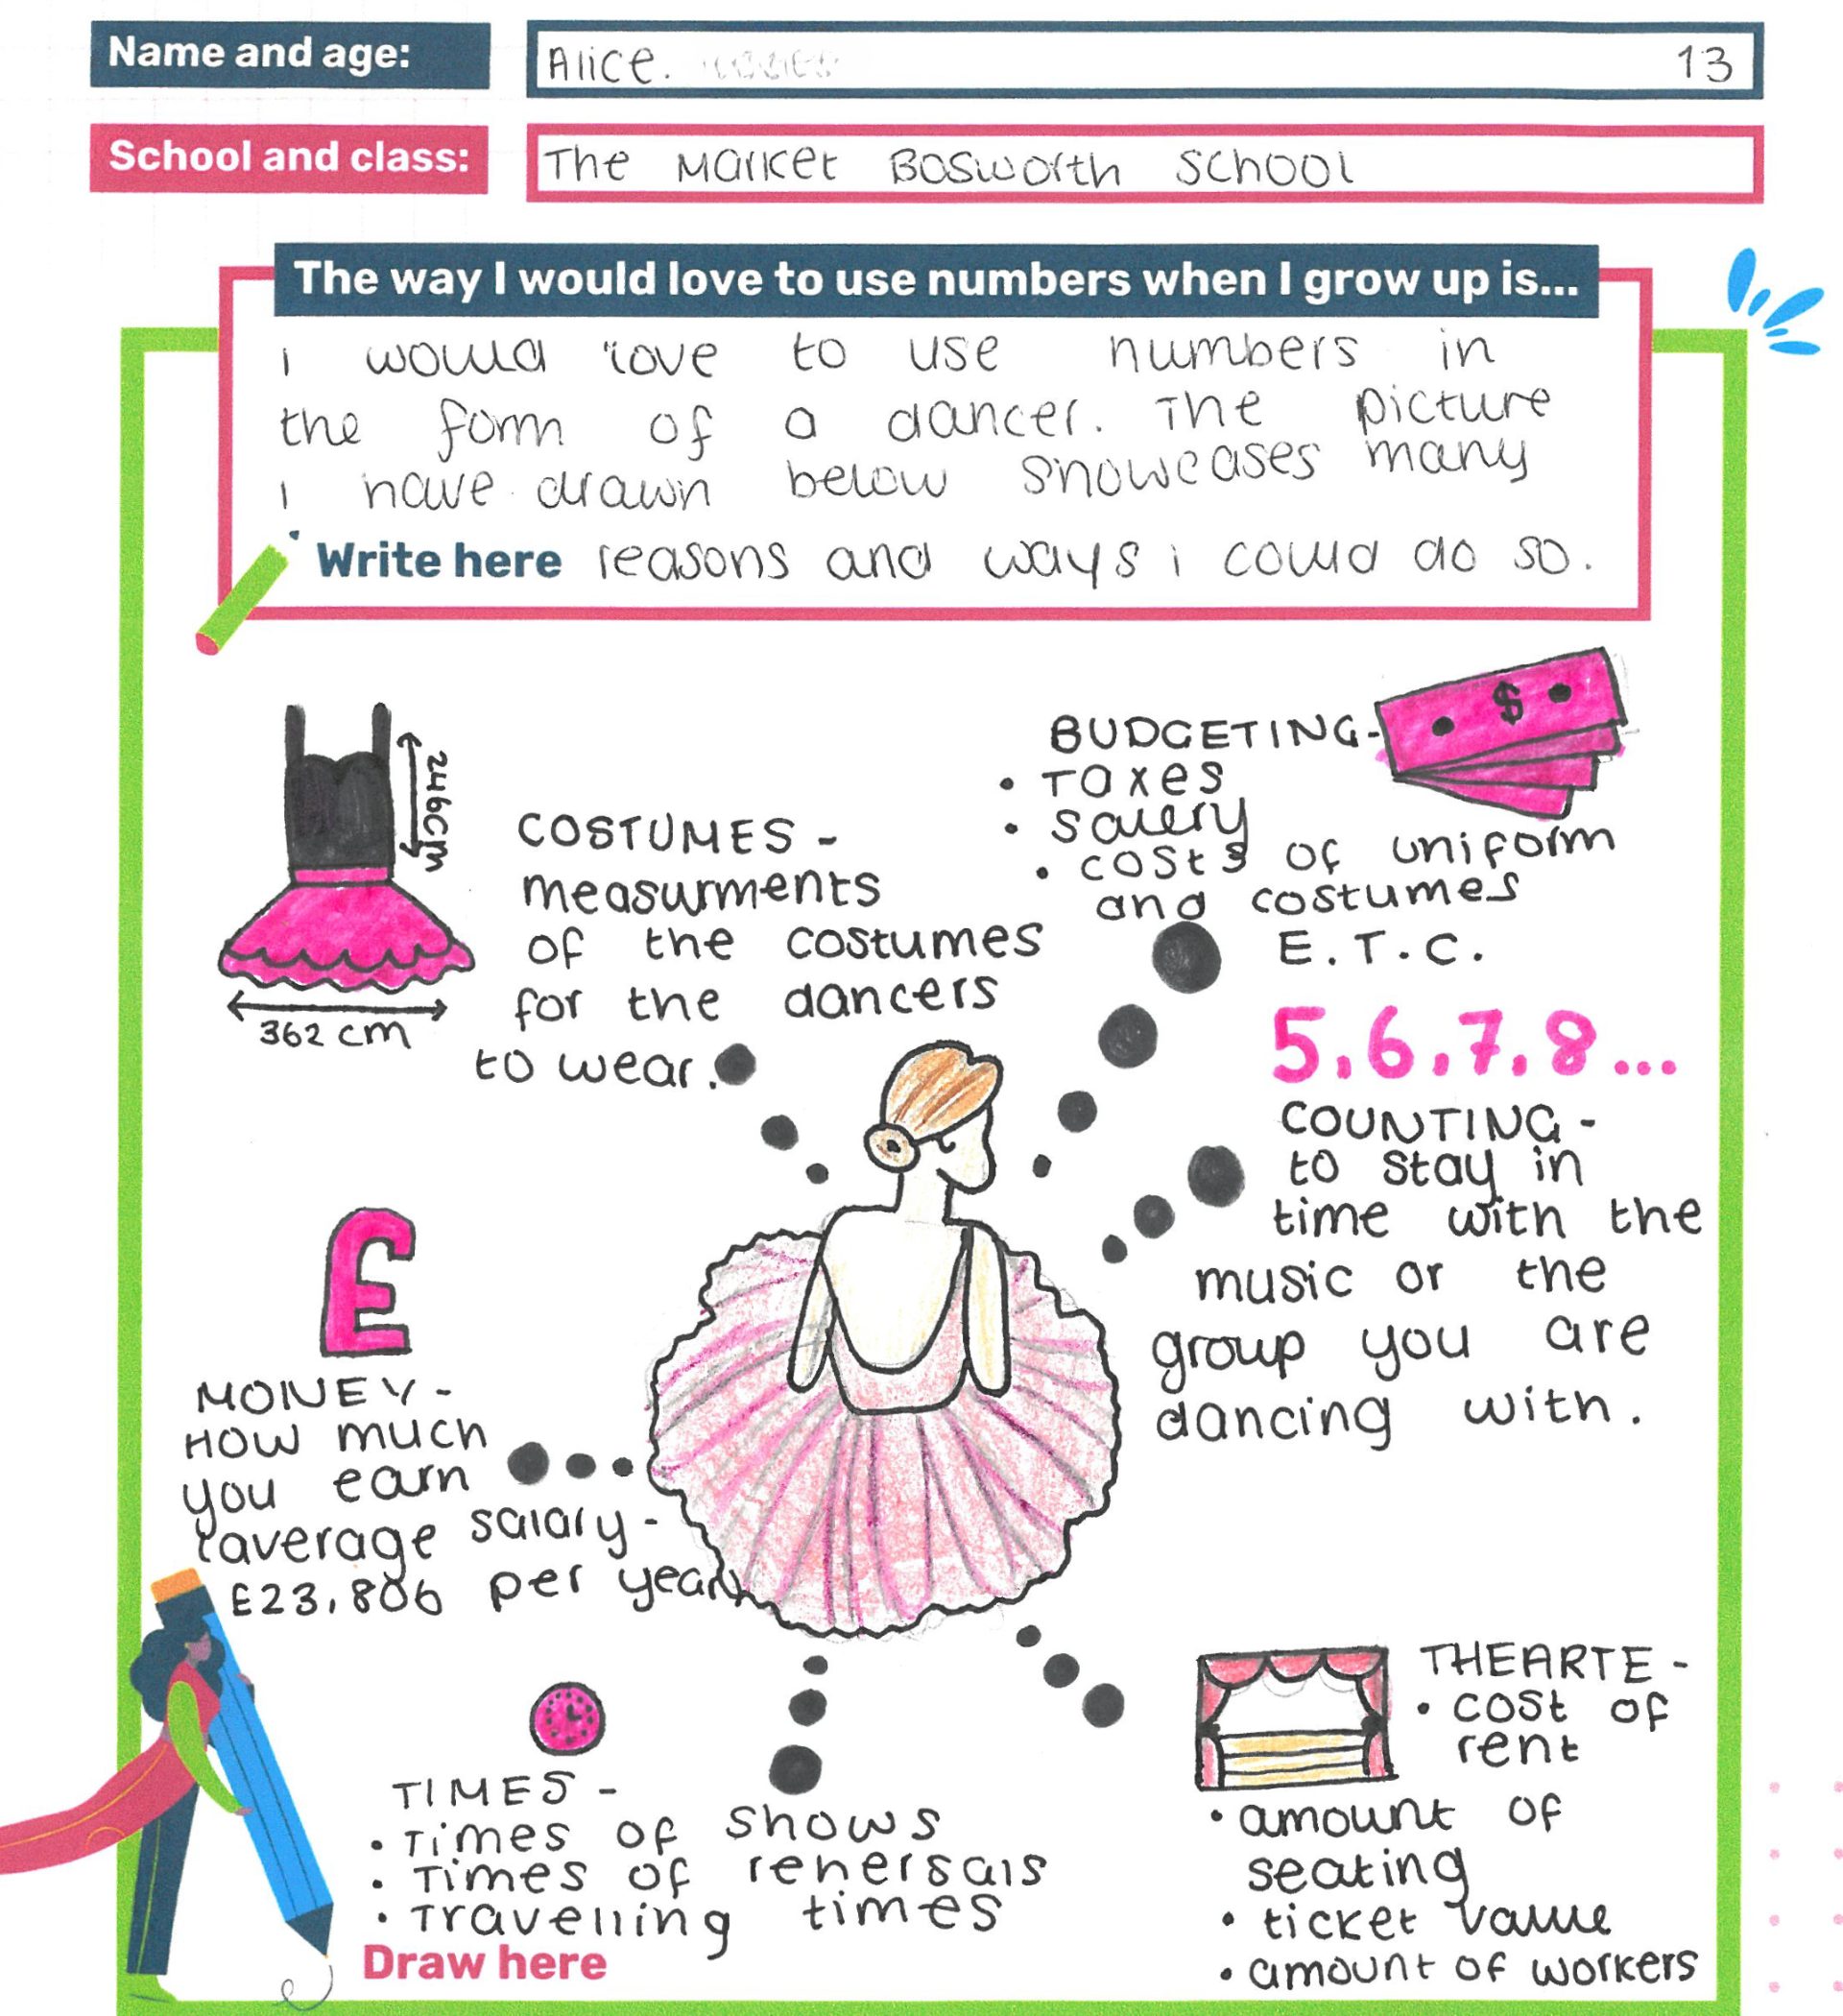 Name and age:
Alice. 13
School and class:
The Market Bosworth School
The way I would love to use numbers when I grow up is...
i would love to use numbers in
the form of a dancer. The picture
i have drawn below showcases many
Write here
reasons and ways i could do so.
246cm
362 cm
COSTUMES -
measurments
of the costumes
for the dancers
to wear.
$
BUDGETING-
• Taxes
• salery
• costs of uniform
and costumes
E.T.C.
5,6,7,8...
COUNTING -
to stay in
time with the
music or the
group you are
dancing with.
£
MONEY -
How much
you earn
(average salary -
£23,806 per year)
TIMES -
• Times of shows
• Times of rehersals
• Travelling times
Draw here
THEARTE -
• cost of
rent
• amount of
seating
• ticket value
• amount of workers